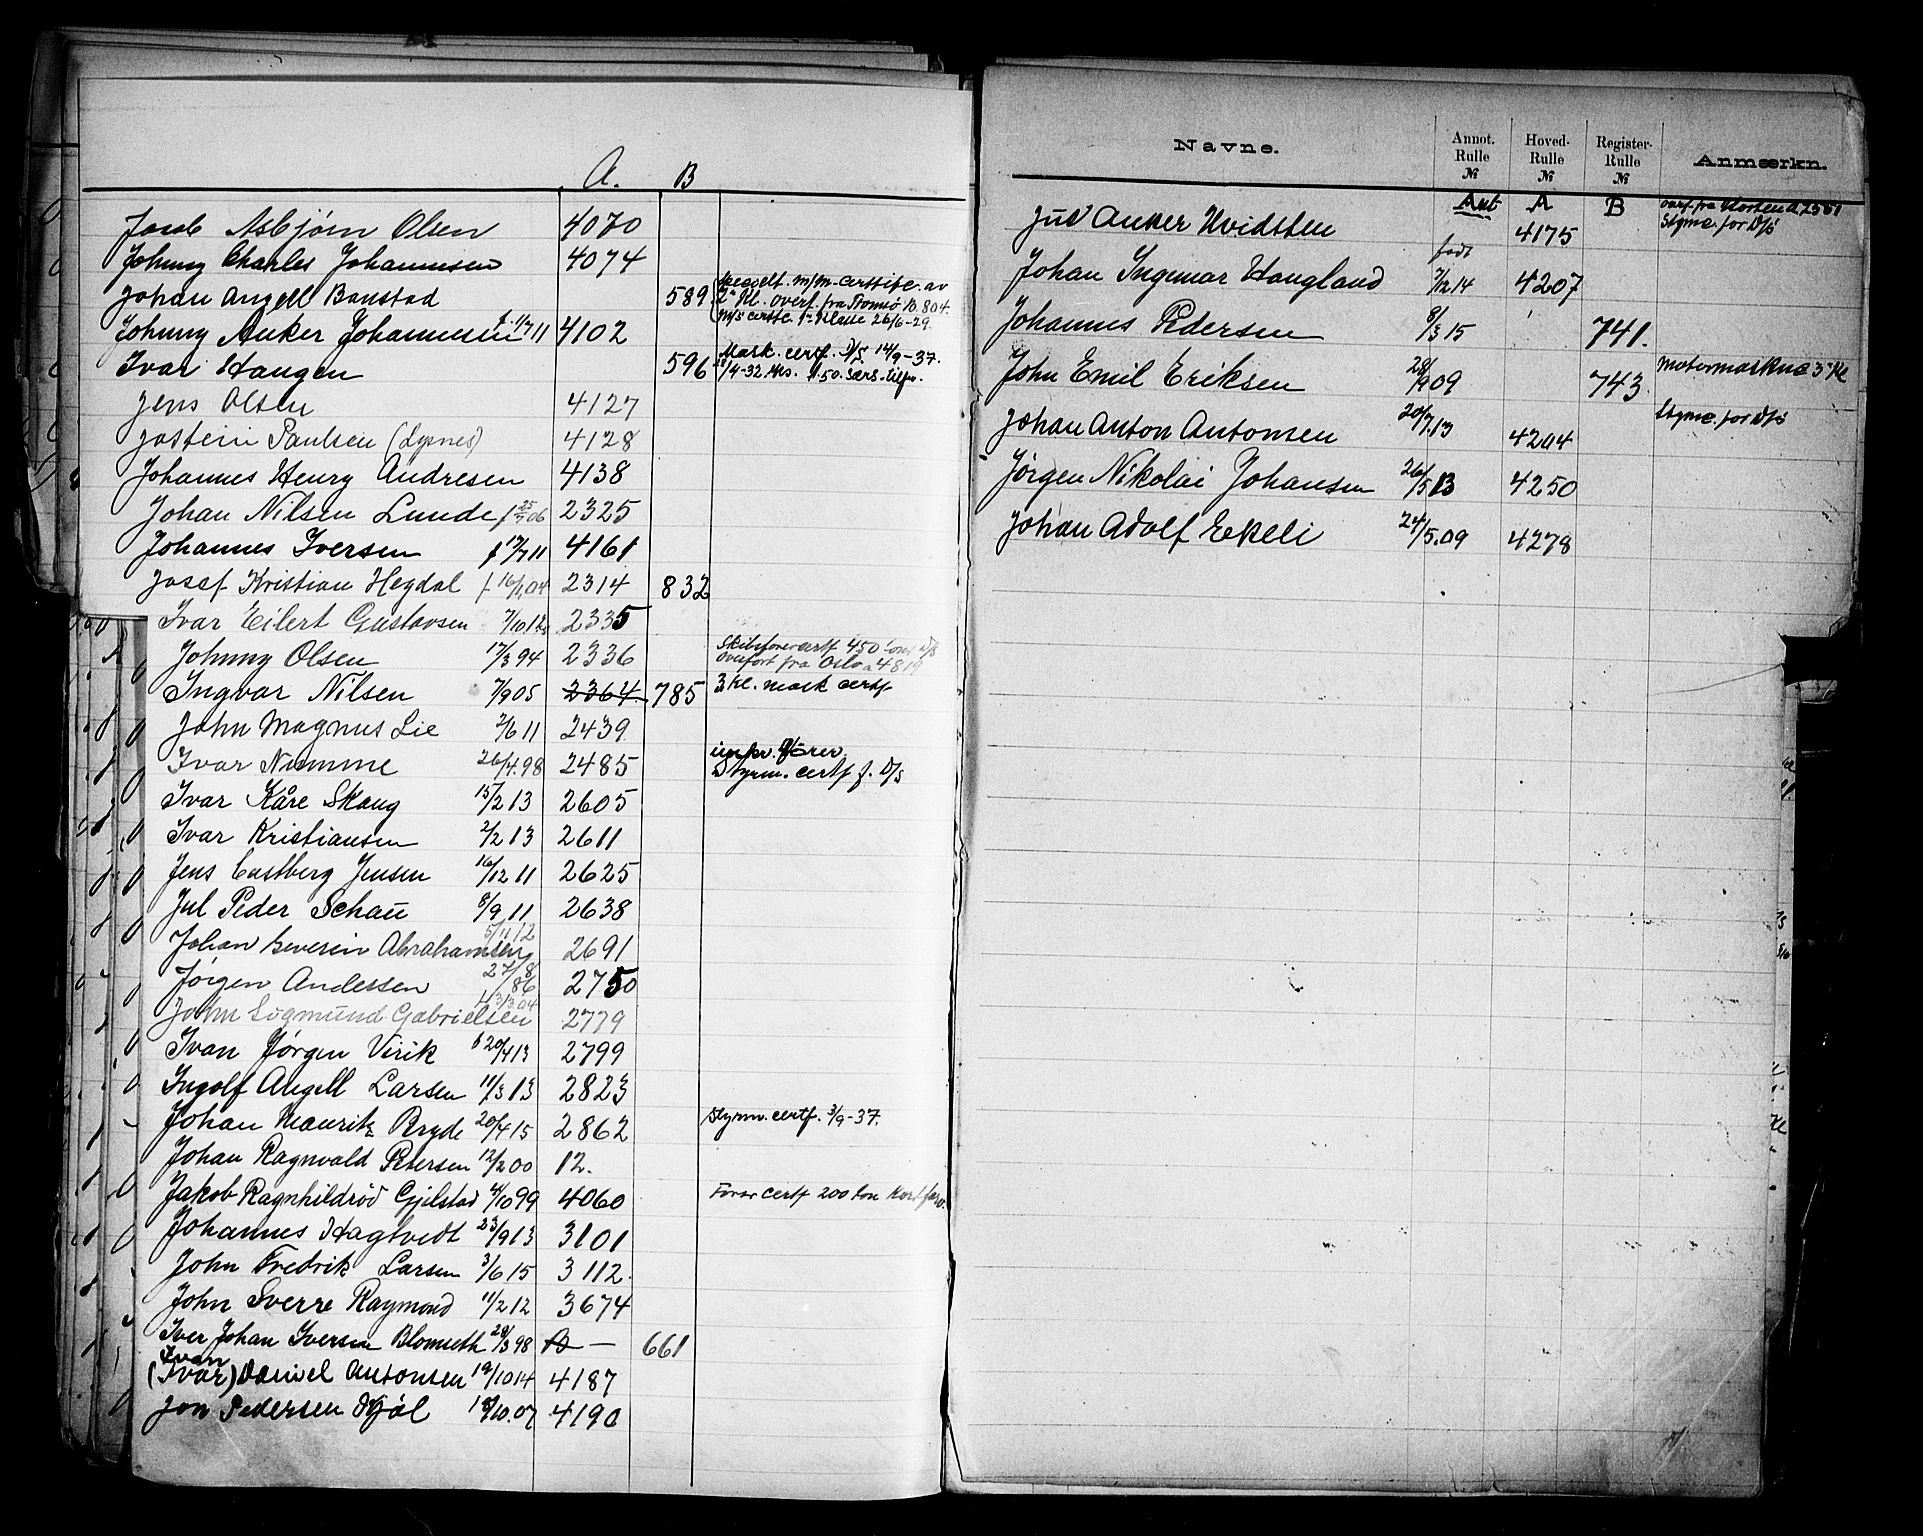 A. B
Jacob Asbjørn Olsen 4070
Johnny Charles Johannesen 4074
Johan Angell Banstad 589 2 Kl. overf. fra Tromsø B. 804.
m/s certfc. 1ste Klasse 26/6-29.
Johnny Anker Johannesen f. 11/7 11 4102
Ivar Haugen 596 Mask. certf. D/S. 14/9-37.
Jens Olsen 4127
Jostein Paulsen (Lysnes) 4128
Johannes Henry Andresen 4138
Johan Nilsen Lunde f 25/7 06 2325
Johannes Iversen f 17/7 11 4161
Josef Kristian Hegdal f 16/1 04 2314 832
Ivar Eilert Gustavsen 7/10 12 2335
Johnny Olsen 17/3 94 2336 Skibsførercertf 450 tons D/S
overført fra Oslo a 4819
Ingvar Nilsen 7/9 05 2364 785 3 kl. mask certf
John Magnus Lie 2/6 11 2439
Ivar Numme 26/4.98 2485
Styrm. certf f. D/S
Ivar Kåre Skaug 15/2 13 2605
Ivar Kristiansen 2/2 13 2611
Jens Castberg Jensen 16/12 11 2625
Jul Peder Schau 8/9 11 2638
Johan Severin Abrahamsen 5/11 12 2691
Jørgen Andersen 27/8 86 2750
John Sigmund Gabrielsen 13/3 04 2779
Ivan Jørgen Virik f 20/4 13 2799
Ingolf Angell Larsen 11/3 13 2823
Johan Mauritz Bryde 20/4 15 2862 Styrm. certf. 3/9-37.
Johan Ragnvald Petersen 12/2 00 12.
Jakob Ragnhildrød Gjelstad 4/10 99 4060 Fører certf 200 ton Kortfarv.
Johannes Hagtvedt 23/9 13 3101
John Fredrik Larsen 3/6 15 3112.
John Sverre Raymond 11/2 12 3674
Iver Johan Iversen Blomseth 20/3 98 B — 661
Ivan
(Ivar) Daniel Antonsen 19/10 14 4187
Jon Pedersen Kjøl 18/10.07 4190
Navne. Annot. Rulle № Hoved- Rulle № Register- Rulle № Anmærkn.
Ant A B overf. fra Horten a 2561
Jul Anker Hvidsten 4175 Styrmc. for D/S
født
Johan Ingemar Haugland 7/12 14 4207
Johannes Pedersen 8/3 15 741.
John Emil Eriksen 28/9 09 743 Motormasknc 3 Kl
Johan Anton Antonsen 20/7.13 4204 Styrmc. for D/S
Jørgen Nikolai Johansen 26/5 13 4250
Johan Adolf Ekeli 24/5.09 4278